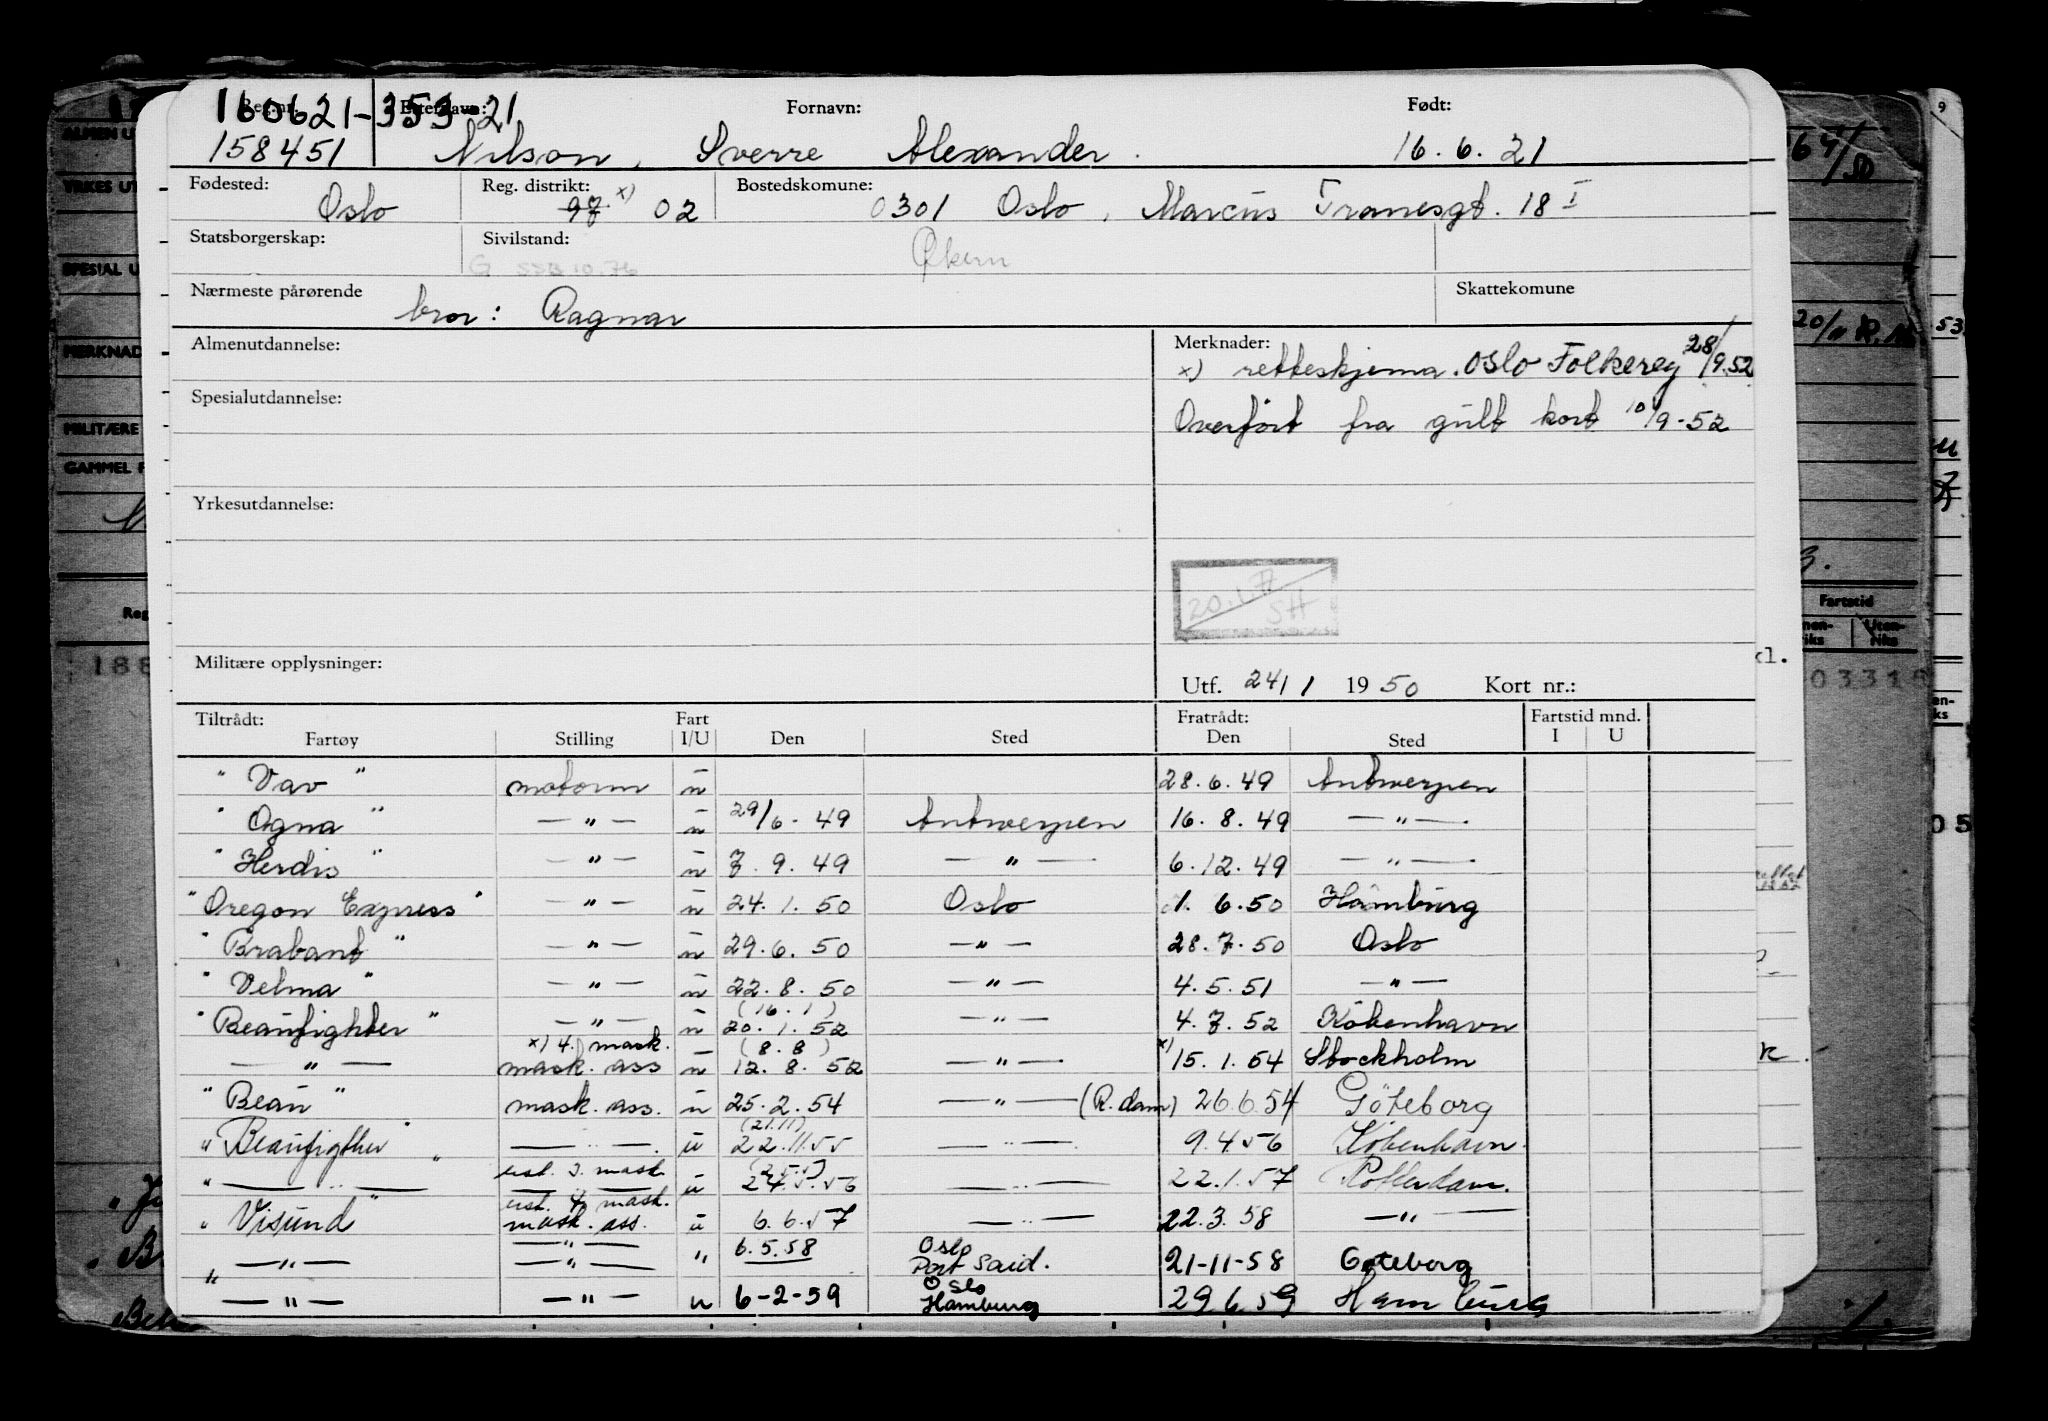 160621-353 21
Reg.nr. Etternavn: Fornavn: Født:
158451 Nilson, Sverre Alexander. 16.6.21
Fødested: Reg. distrikt: x) Bostedskomune:
Oslo 97 02 0301 Oslo, Marcus Tranesgt. 18 I
Statsborgerskap: Sivilstand:
G SSB 10.76 Økern
Nærmeste pårørende Skattekomune
bror: Ragnar
Almenutdannelse: Merknader:
x) retteskjema. Oslo Folkereg 28/9.52
Spesialutdannelse:
Overført fra gult kort 10/9-52
Yrkesutdannelse:
20.1.77
SH
Militære opplysninger:
Utf. 24/1 1950 Kort nr.:
Tiltrådt: Fart Fratrådt: Fartstid mnd.
Fartøy Stilling I/U Den Sted Den Sted I U
" Vav " motorm u 28.6.49 Antwerpen
" Ogna " — " — u 29/6-49 Antwerpen 16.8.49 — " —
" Herdis " — " — u 7.9.49 — " — 6.12.49 — " —
"Oregon Express" — " — u 24.1.50 Oslo 1.6.50 Hamburg
" Brabant " — " — u 29.6.50 — " — 28.7.50 Oslo
" Velma " — " — u 22.8.50 — " — 4.5.51 — " —
(16.1)
" Beaufighter " — " — u 20.1.52 — " — 4.7.52 København
x) 4. mask. (8.8) x)
— " — mask. ass u 12.8.52 — " — 15.1.54 Stockholm
" Beau " mask. ass. u 25.2.54 — " — (R.dam) 26.6.54 Göteborg
(21.11)
" Beaufigther " — " — u 22.11.55 — " — 9.4.56 København.
ust. 3. mask (25.5)
" — " — — " — u 24.5.56 — " — 22.1.57 Rotterdam.
ust. 4. mask.
" Visund " mask. ass. u 6.6.57 — " — 22.3.58 — " —
— " — Oslo
" — " — — " — " 6.5.58 Port Said. 21-11-58 Goteborg
Oslo
— " — — " — u 6-2-59 Hamburg 29.6.59 Hamburg